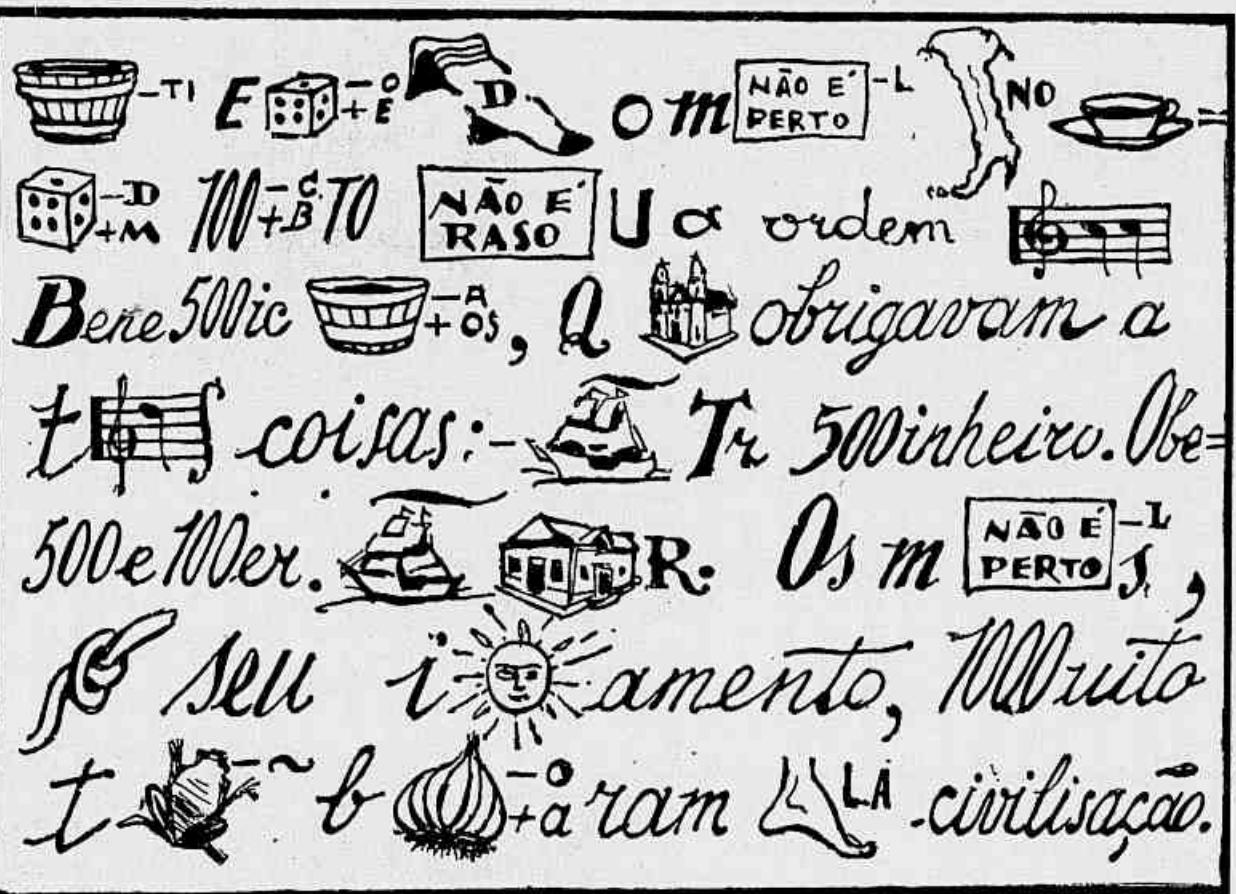 -TI E -O +E D. O m NÃO É PERTO -L NO =
-D +M 100 -C +B TO NÃO É RASO U a ordem
Bene500ic -A +OS, Q obrigavam a
t S coisas:- Tr 500inheiro. Obe=
500e100er. R. Os m NÃO É PERTO -L s,
seu i amento, 1000uito
t -~ b -O +a ram LA civilisação.